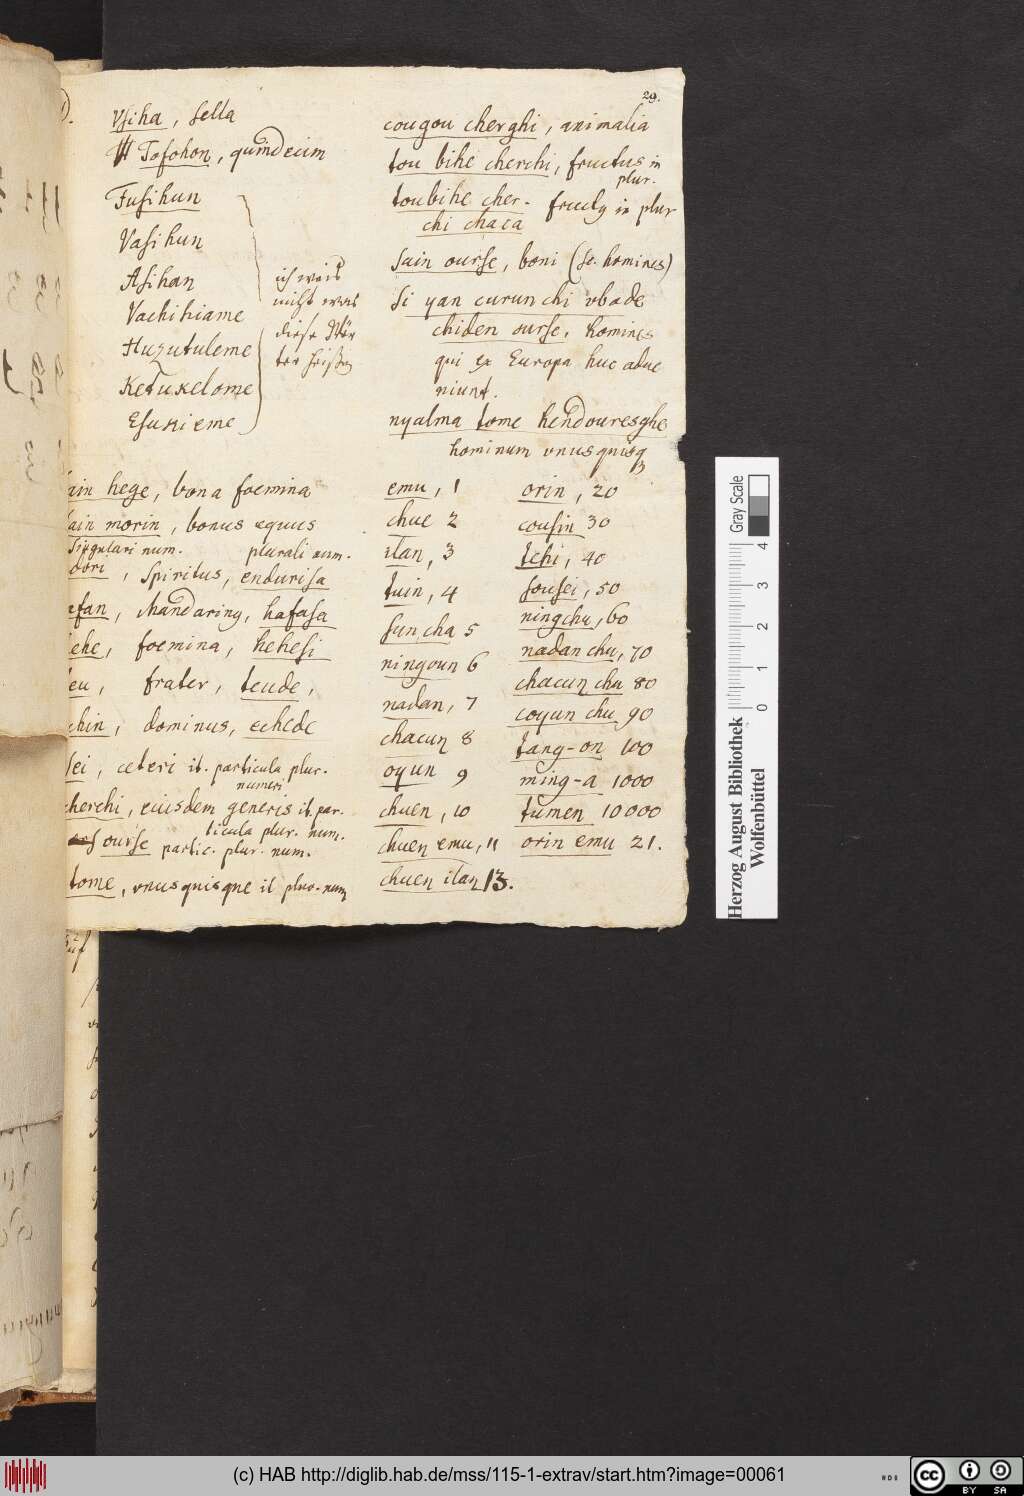 29.
Vsiha, sella
Tofohon, quindecim
Fusihun
Vasihun
Asihan
Vachihiame
Huzutuleme
Ketuxelome
Esuxieme
ich weis
nicht was
diese Wör
ter heißen
ain hege, bona foemina
ain morin, bonus equus
Singulari num. plurali num.
dori, Spiritus, endurisa
efan, Mandaring, hafasa
ehe, foemina, hehesi
eu, frater, teude,
chin, dominus, echede
sei, ceteri it. particula plur.
numeri
cherchi, eiusdem generis it. par-
ticula plur. num.
ourse partic. plur. num.
tome, vnusquisque it plur. num
cougou cherghi, animalia
tou bihe cherchi, fructus in
plur.
toubihe cher- fructg in plur
chi chaca
Sain ourse, boni (sc. homines)
Si yan curun chi vbade
chiden ourse, homines
qui ex Europa huc adue
niunt.
nyalma tome hendouresghe
hominum vnusquisq
emu, 1
chue 2
ilan, 3
tuin, 4
suncha 5
ningoun 6
nadan, 7
chacun 8
oyun 9
chuen, 10
chuen emu, 11
chuen ilan 13.
orin, 20
cousin 30
tchi, 40
sousei, 50
ningchu, 60
nadan chu, 70
chacun chu 80
coyun chu 90
tang-on 100
ming-a 1000
tumen 10000
orin emu 21.
Gray Scale
0 1 2 3 4
Herzog August Bibliothek
Wolfenbüttel
(c) HAB http://diglib.hab.de/mss/115-1-extrav/start.htm?image=00061
HAB
cc BY SA